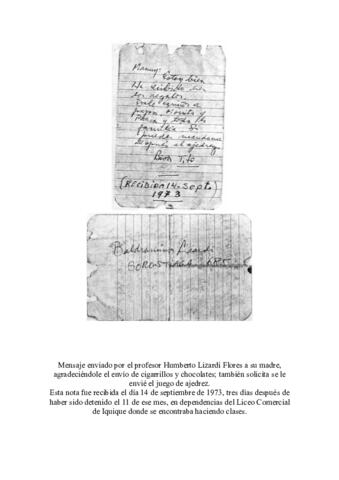 Mammy: Estoy bien
He recibido bien
los regalos.
papá,
y toda la
familia. Si
puedes mandame
después el ajedrez
Besos Tito
(RECIBIDA 14-Sept)
1973
Baldramina Lizardi
Mensaje enviado por el profesor Humberto Lizardi Flores a su madre,
agradeciéndole el envío de cigarrillos y chocolates; también solicita se le
envié el juego de ajedrez.
Esta nota fue recibida el día 14 de septiembre de 1973, tres días después de
haber sido detenido el 11 de ese mes, en dependencias del Liceo Comercial
de Iquique donde se encontraba haciendo clases.